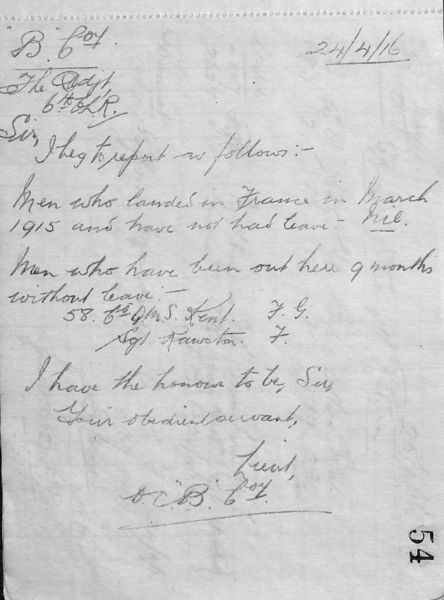 "B" Coy.
24/4/16
The Adjt,
6th C.L.R.
Sir,
I beg to report as follows:-
Men who landed in France in March
1915 and have not had leave - Nil.
Men who have been out here 9 months
without leave:-
58. C.Q.M.S. Kent. F.G.
Sgt. Rawston. F.
I have the honour to be, Sir,
Your obedient servant,
Lieut,
O.C. "B" Coy.
54